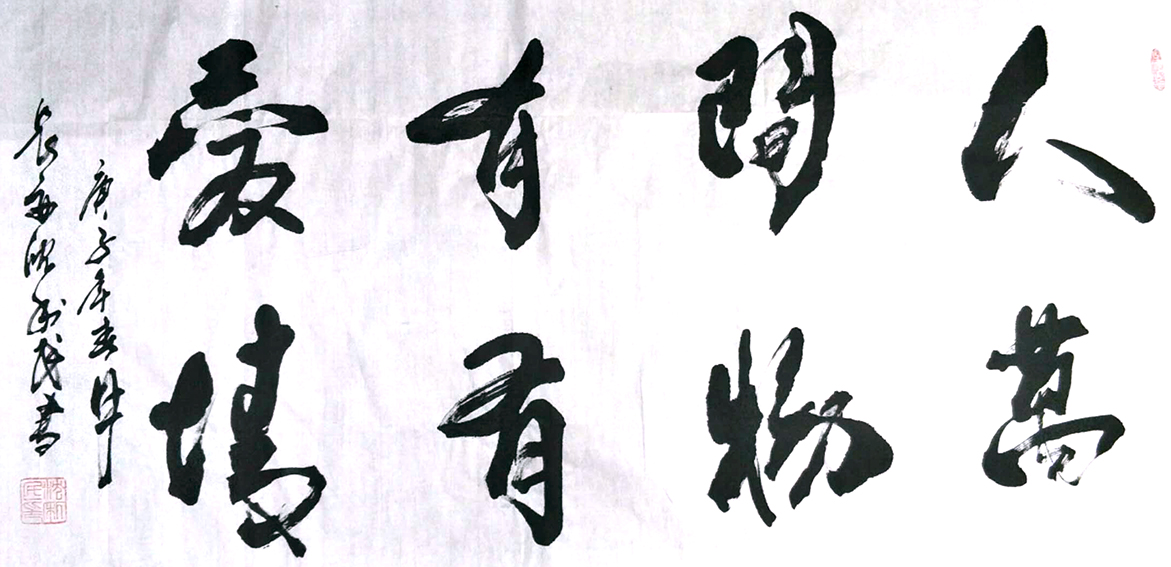 人間有愛
萬物有情
庚子年春
長安沈利民書